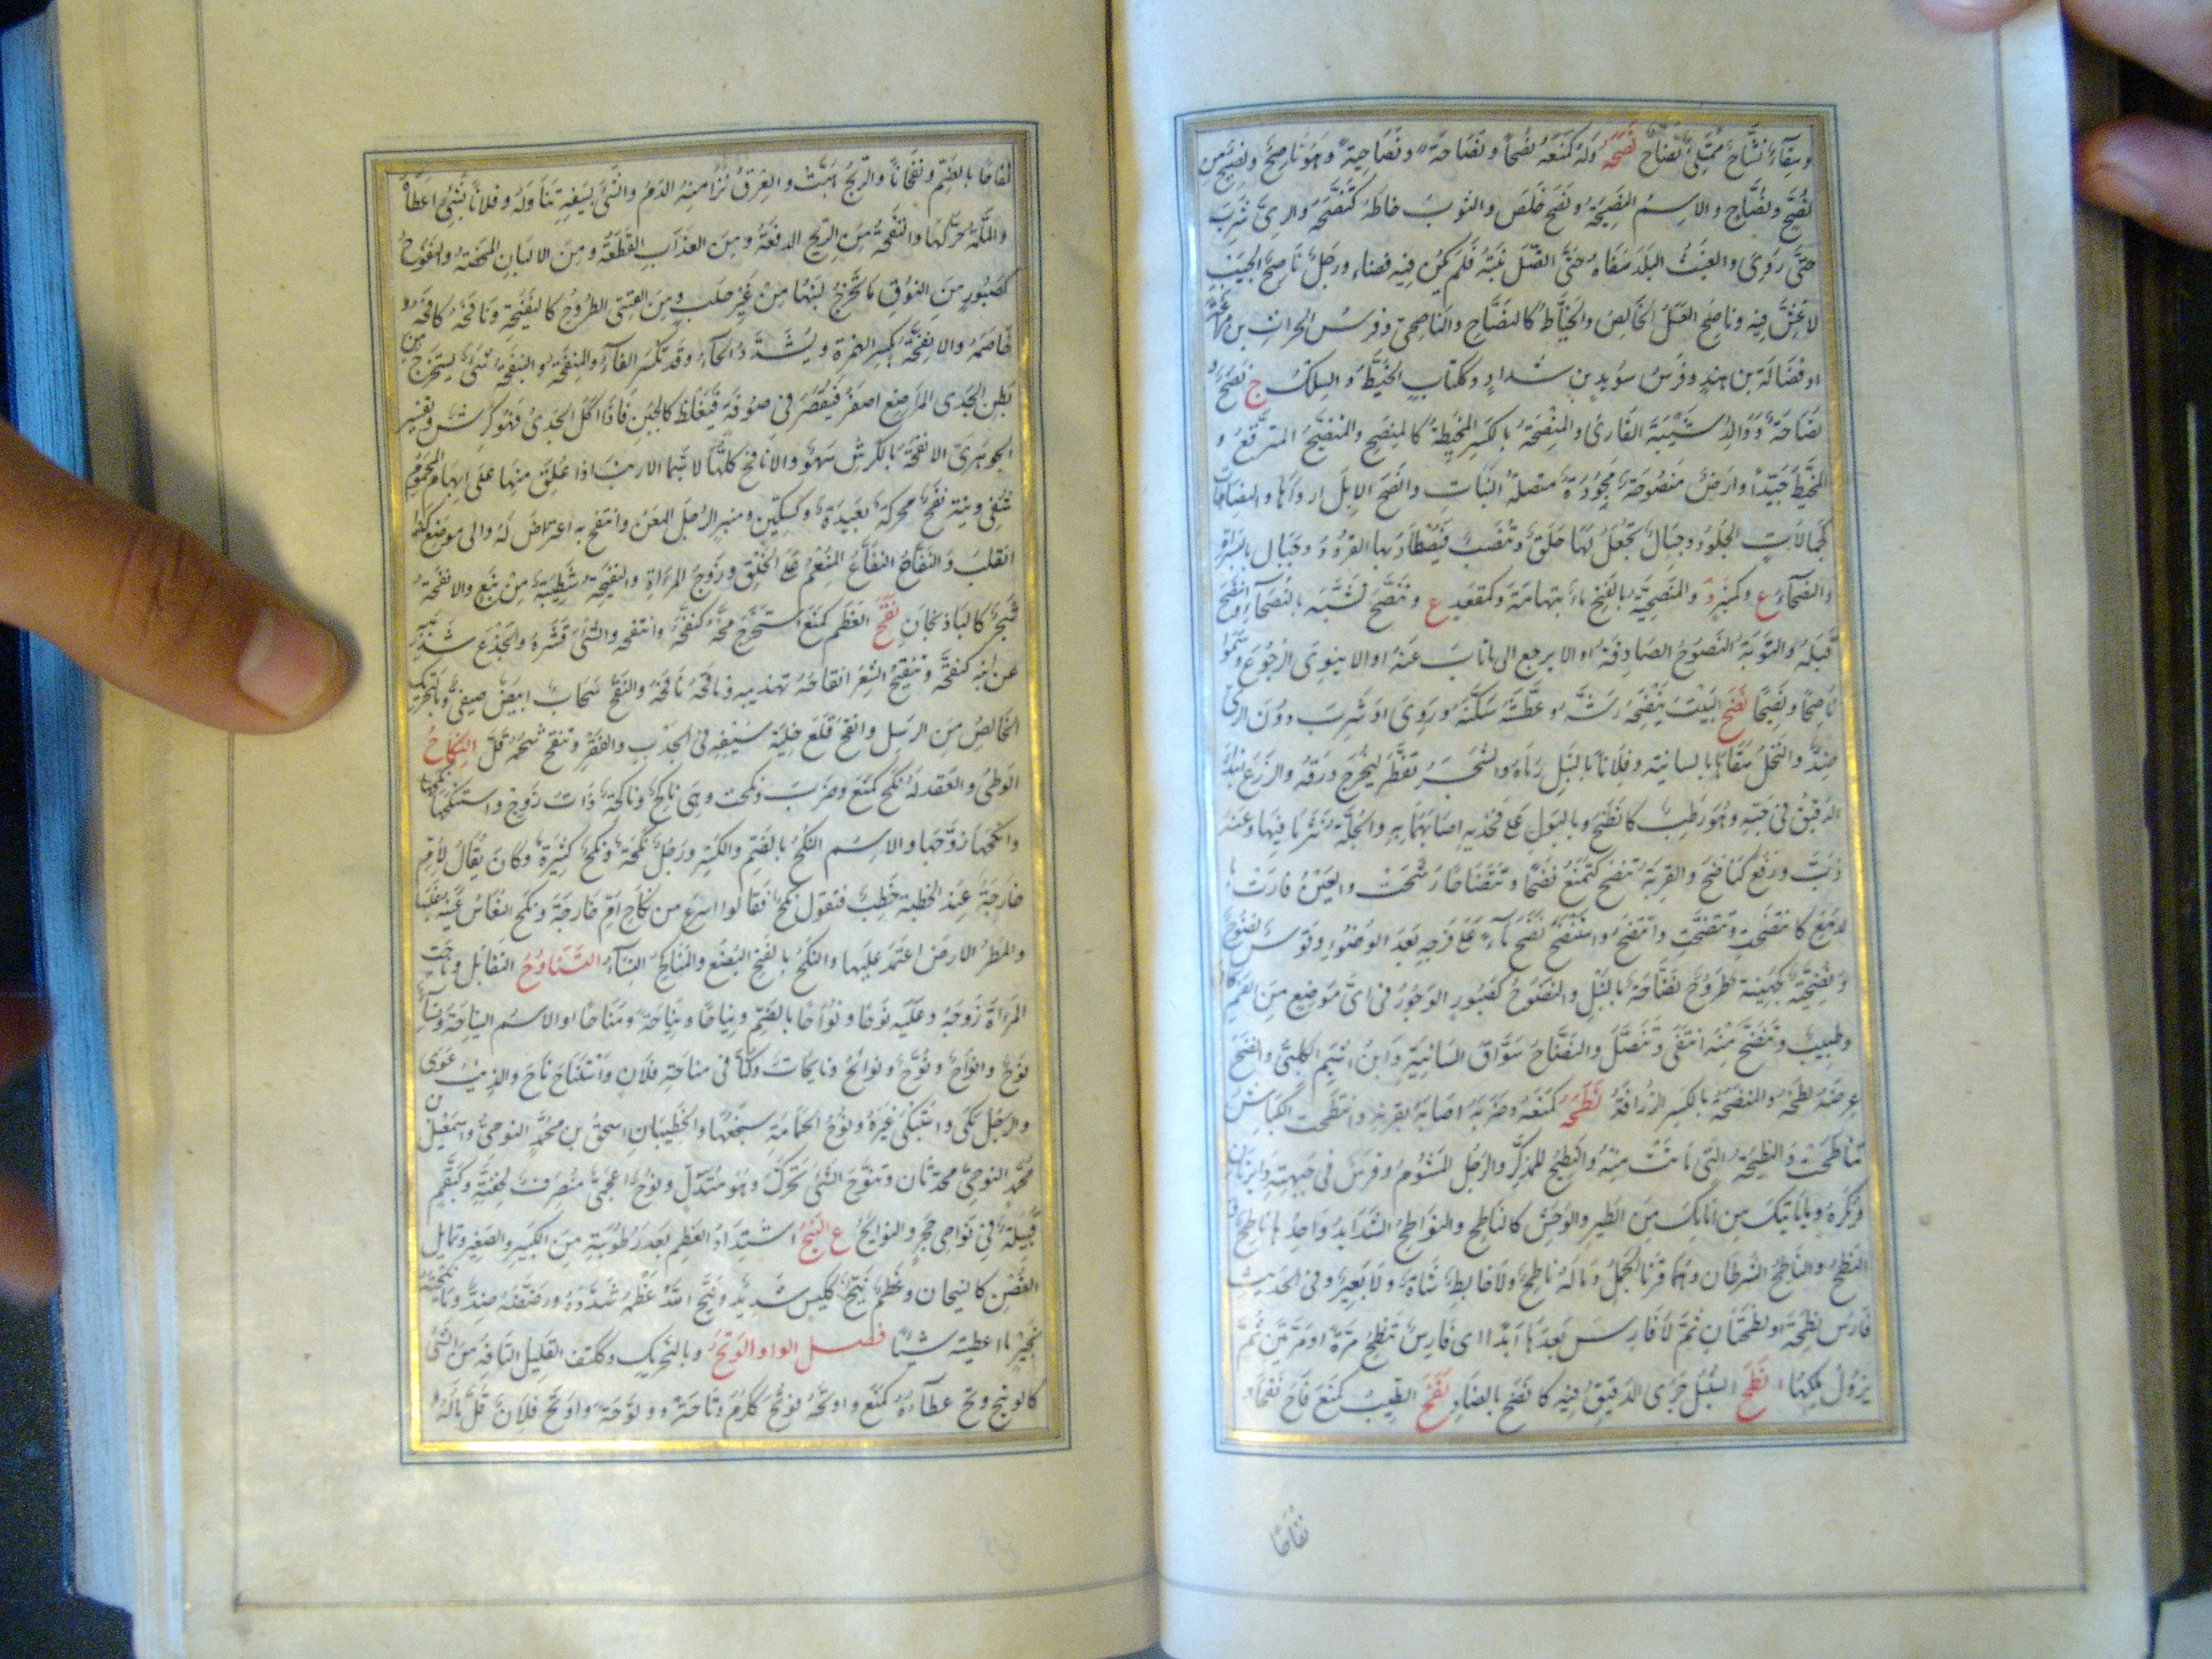 وسِقَاءٌ نَشَّاحٌ مُمْتَلِئٌ نَضَّاحٌ نَصَحَهُ وَلَهُ كَمَنَعَهُ نُصْحًا وَنَصَاحَةً وَنَصَاحِيَةً وَهُوَ نَاصِحٌ وَنَصِيحٌ مِن
نُصَّحٍ وَنُصَّاحٍ وَالاِسْمُ النَّصِيحَةُ وَنَصَحَ خَلَصَ وَالثَّوْبَ خَاطَهُ كَتَنَصَّحَهُ وَالرِّيَّ شَرِبَ
حَتَّى رَوِيَ وَالغَيْثُ البَلَدَ سَقَاهُ حَتَّى اتَّصَلَ نَبْتُهُ فَلَمْ يَكُنْ فِيهِ فَضَاءٌ وَرَجُلٌ نَاصِحُ الجَيْبِ
لَا غِشَّ فِيهِ وَنَاصِحُ العَسَلِ الخَالِصُ وَالخَيَّاطُ كَالنَّصَّاحِ وَالنَّاصِحِيِّ وَفَرَسُ الحَرَاثِ بنِ
أو فَضَالَةَ بنِ هِنْدٍ وَفَرَسُ سُوَيْدِ بنِ شَدَّادٍ وَكَكِتَابٍ الخَيْطُ وَالسِّلْكُ ج نُصُحٌ وَ
نِصَاحَةٌ وَوَالِدُ شَيْبَةَ القَارِئِ وَالمِنْصَحَةُ بِالكَسْرِ المِخْيَطَةُ كَالمِنْصَحِ وَالمُتَنَصَّحُ المُتَرَقَّعُ وَ
المُخَيَّطُ جَيِّدًا وَأَرْضٌ مَنْصُوحَةٌ مَجُودَةٌ مُتَّصِلَةُ النَّبَاتِ وَأَنْصَحَ الإِبِلَ أَرْوَاهَا وَالنِّصَاحَاتُ
كَجِمَالَاتٍ الجُلُودُ وَحِبَالٌ يُجْعَلُ لَهَا حَلَقٌ وَتُنْصَبُ فَيُصْطَادُ بِهَا القُرُودُ وَجِبَالٌ بِالسَّرَاةِ
وَالنَّصْحَاءُ ع وَكَمِنْبَرٍ د وَالمَنْصَحِيَّةُ بِالفَتْحِ مَاءٌ بِتِهَامَةَ وَكَمَقْعَدٍ ع وَتَنَصَّحَ تَشَبَّهَ بِالنُّصَحَاءِ وَانْتَصَحَ
قَبِلَهُ وَالتَّوْبَةُ النَّصُوحُ الصَّادِقَةُ أَوْ أَلَّا يَرْجِعَ إِلَى مَا تَابَ عَنْهُ أَوْ أَلَّا يَنْوِيَ الرُّجُوعَ وَسَمَّوْا
نَاصِحًا وَنَصِيحًا نَضَحَ البَيْتَ يَنْضِحُهُ رَشَّهُ وَعَطَشَهُ سَكَّنَهُ وَرَوِيَ أَوْ شَرِبَ دُونَ الرِّيِّ
ضِدٌّ وَالنَّخْلَ سَقَاهَا بِالسَّانِيَةِ وَفُلَانًا بِالنَّبْلِ رَمَاهُ وَالشَّجَرُ تَفَطَّرَ لِيَخْرُجَ وَرَقُهُ وَالزَّرْعُ ابْتَدَأَ
الدَّقِيقُ فِي حَبِّهِ وَهُوَ رَطْبٌ كَأَنْضَحَ وَبِالبَوْلِ عَلَى فَخِذَيْهِ أَصَابَهُمَا بِهِ وَالجُلَّةَ نَثَرَ مَا فِيهَا وَعَنْهُ
ذَبَّ وَدَفَعَ كَنَاضَحَ وَالقِرْبَةُ تَنْضَحُ كَتَمْنَعُ نَضْحًا وَتَنْضَاحًا رَشَحَتْ وَالعَيْنُ فَارَتْ بِ
الدَّمْعِ كَانْتَضَحَتْ وَتَنَضَّحَتْ وَانْتَضَحَ وَاسْتَنْضَحَ نَضَحَ مَاءً عَلَى فَرْجِهِ بَعْدَ الوُضُوءِ وَقَوْسٌ نَضُوحٌ
وَنَضَحِيَّةٌ كَجُهَنِيَّةٍ طَرُوحٌ نَضَّاحَةٌ بِالنَّبْلِ وَالنَّضُوحُ كَصَبُورٍ الوَجُورُ فِي أَيِّ مَوْضِعٍ مِنَ الفَمِ كَانَ
وَطِيبٌ وَتَنَضَّحَ مِنْهُ انْتَفَى وَتَنَصَّلَ وَالنَّضَّاحُ سَوَّاقُ السَّانِيَةِ وَابْنُ أَشْيَمَ الكَلْبِيُّ وَأَنْضَحَ
عِرْضَهُ لَطَخَهُ وَالمِنْضَحَةُ بِالكَسْرِ الزَّرَّافَةُ نَطَحَهُ كَمَنَعَهُ وَضَرَبَهُ أَصَابَهُ بِقَرْنِهِ وَانْتَطَحَتِ الكِبَاشُ
تَنَاطَحَتْ وَالنَّطِيحَةُ الَّتِي مَاتَتْ مِنْهُ وَالنَّطِيحُ لِلْمُذَكَّرِ وَالرَّجُلُ المَشْؤُومُ وَفَرَسٌ فِي جَبْهَتِهِ دَائِرَتَانِ
وَيُكْرَهُ وَمَا يَأْتِيكَ مِنْ أَمَامِكَ مِنَ الطَّيْرِ وَالوَحْشِ كَالنَّاطِحِ وَالنَّوَاطِحُ الشَّدَائِدُ وَاحِدُهَا نَاطِحٌ وَ
النَّطْحُ وَالنَّاطِحُ الشَّرَطَانِ وَهُمَا قَرْنَا الحَمَلِ وَمَا لَهُ نَاطِحٌ وَلَا خَابِطٌ شَاةٌ وَلَا بَعِيرٌ وَفِي الحَدِيثِ
فَارِسُ نَطْحَةٌ أَوْ نَطْحَتَانِ ثُمَّ لَا فَارِسَ بَعْدَهَا أَبَدًا أَيْ فَارِسُ تَنْطِحُ مَرَّةً أَوْ مَرَّتَيْنِ ثُمَّ
يَزُولُ مُلْكُهَا أنْظَحَ السُّنْبُلُ جَرَى الدَّقِيقُ فِيهِ كَأَنْضَحَ بِالضَّادِ نَفَحَ الطِّيبُ كَمَنَعَ فَاحَ نَفْحًا وَ
نفاحًا
نُفَاحًا بِالضَّمِّ وَنَفَحَانًا وَالرِّيحُ هَبَّتْ وَالعِرْقُ نَزَا مِنْهُ الدَّمُ وَالشَّيْءَ بِسَيْفِهِ تَنَاوَلَهُ وَفُلَانًا بِشَيْءٍ أَعْطَاهُ
وَاللِّمَّةَ حَرَّكَهَا وَالنَّفْحَةُ مِنَ الرِّيحِ الدَّفْعَةُ وَمِنَ العَذَابِ القِطْعَةُ وَمِنَ الأَلْبَانِ المَحْضَةُ وَالنَّفُوحُ
كَصَبُورٍ مِنَ النُّوقِ مَا تُخْرِجُ لَبَنَهَا مِنْ غَيْرِ حَلَبٍ وَمِنَ القِسِيِّ الطَّرُوحُ كَالنَّفِيحَةِ وَنَافَحَهُ كَافَحَهُ وَ
خَاصَمَهُ وَالإِنْفَحَةُ بِكَسْرِ الهَمْزَةِ وَيُشَدَّدُ الحَاءُ وَقَدْ تُكْسَرُ الفَاءُ وَالمِنْفَحَةُ وَالبِنْفَحَةُ شَيْءٌ يُسْتَخْرَجُ مِنْ
بَطْنِ الجَدْيِ الرَّاضِعِ أَصْفَرُ فَيُعْصَرُ فِي صُوفَةٍ فَيَغْلُظُ كَالجُبْنِ فَإِذَا أَكَلَ الجَدْيُ فَهُوَ كَرِشٌ وَتَفْسِيرُ
الجَوْهَرِيِّ الإِنْفَحَةَ بِالكَرِشِ سَهْوٌ وَالأَنَافِحُ كُلُّهَا لَا سِيَّمَا الأَرْنَبُ إِذَا عُلِّقَ مِنْهَا عَلَى إِبْهَامِ المَحْمُومِ
شُفِيَ وَنِيَّةٌ نَفَحٌ مُحَرَّكَةً بَعِيدَةٌ وَكَسِكِّينٍ وَمِنْبَرٍ الرَّجُلُ المِعَنُّ وَانْتَفَحَ بِهِ اعْتَرَضَ لَهُ وَإِلَى مَوْضِعِ كَذَا
انْقَلَبَ وَالنَّفَّاحُ النَّفَّاعُ المُنْعِمُ عَلَى الخَلْقِ وَزَوْجُ المَرْأَةِ وَالنَّفِيحَةُ شَطِيبَةٌ مِنْ نَبْعٍ وَالإِنْفَحَةُ
شَجَرٌ كَالبَاذِنْجَانِ نَقَحَ العَظْمَ كَمَنَعَ اسْتَخْرَجَ مُخَّهُ كَنَقَّحَهُ وَانْتَقَحَهُ وَالشَّيْءَ قَشَرَهُ وَالجِذْعَ شَذَّبَهُ
عَنْ أُبَنِهِ كَنَقَّحَهُ وَتَنْقِيحُ الشِّعْرِ إِنْقَاحُهُ تَهْذِيبُهُ وَنَاقَحَهُ نَافَحَهُ وَالنَّقْحُ سَحَابٌ أَبْيَضُ صَيْفِيٌّ وَبِالتَّحْرِيكِ
الخَالِصُ مِنَ الرَّمْلِ وَأَنْقَحَ قَلَعَ حِلْيَةَ سَيْفِهِ فِي الجَدْبِ وَالفَقْرِ وَتَنَقَّحَ شَحْمُهُ قَلَّ النِّكَاحُ
الوَطْءُ وَالعَقْدُ لَهُ نَكَحَ كَمَنَعَ وَضَرَبَ وَنَكَحَتْ وَهِيَ نَاكِحٌ وَنَاكِحَةٌ ذَاتُ زَوْجٍ وَاسْتَنْكَحَهَا نَكَحَهَا
وَأَنْكَحَهَا زَوَّجَهَا وَالاِسْمُ النُّكْحُ بِالضَّمِّ وَالكَسْرِ وَرَجُلٌ نُكَحَةٌ وَنُكَحٌ كَثِيرُهُ وَكَانَ يُقَالُ لِأُمِّ
خَارِجَةَ عِنْدَ الخِطْبَةِ خِطْبٌ فَتَقُولُ نِكْحٌ فَقَالُوا أَسْرَعُ مِنْ نِكَاحِ أُمِّ خَارِجَةَ وَنَكَحَ النُّعَاسُ عَيْنَهُ غَلَبَهَا
وَالمَطَرُ الأَرْضَ اعْتَمَدَ عَلَيْهَا وَالنَّكْحُ بِالفَتْحِ البُضْعُ وَالمَنَاكِحُ النِّسَاءُ التَّنَاوُحُ التَّقَابُلُ وَنَاحَتِ
المَرْأَةُ زَوْجَهَا وَعَلَيْهِ نَوْحًا وَنُوَاحًا بِالضَّمِّ وَنِيَاحًا وَنِيَاحَةً وَمَنَاحًا وَالاِسْمُ النِّيَاحَةُ وَنِسَاءٌ
نَوْحٌ وَأَنْوَاحٌ وَنُوَّحٌ وَنَوَائِحُ وَنَائِحَاتٌ وَكُنَّا فِي مَنَاحَةِ فُلَانٍ وَاسْتَنَاحَ نَاحَ وَالذِّئْبُ عَوَى
وَالرَّجُلُ بَكَى وَاسْتَبْكَى غَيْرَهُ وَنَوْحُ الحَمَامَةِ سَجْعُهَا وَالخَطِيبَانِ إِسْحَقُ بنُ مُحَمَّدٍ النُّوحِيُّ وَإِسْمَعِيلُ بن
مُحَمَّدٍ النُّوحِيُّ مُحَدِّثَانِ وَتَنَوَّحَ الشَّيْءُ تَحَرَّكَ وَهُوَ مُتَدَلٍّ وَنُوحٌ أَعْجَمِيٌّ مُنْصَرِفٌ لِخِفَّتِهِ وَكَبَقَّمٍ
قَبِيلَةٌ فِي نَوَاحِي حَجْرٍ وَالنَّوَائِحُ ع النَّيْحُ اشْتِدَادُ العَظْمِ بَعْدَ رُطُوبَتِهِ مِنَ الكَبِيرِ وَالصَّغِيرِ وَتَمَايُلُ
الغُصْنِ كَالنَّيَحَانِ وَعَظْمٌ نَيِّحٌ كَكَيِّسٍ شَدِيدٌ وَنَيَّحَ اللهُ عَظْمَهُ شَدَّدَهُ وَرَضَّضَهُ ضِدٌّ وَمَا نَيَّحْتُهُ
بِخَيْرٍ مَا أَعْطَيْتُهُ شَيْئًا فصل الواو الوَتْحُ وَبِالتَّحْرِيكِ وَكَكَتِفٍ القَلِيلُ التَّافِهُ مِنَ الشَّيْءِ
كَالوَتِيحِ وَتَحَ عَطَاءَهُ كَمَنَعَ وَأَوْتَحَهُ فَوَتُحَ كَكَرُمَ وَتَاحَةً وَوُتُوحَةً وَأَوْتَحَ فُلَانٌ قَلَّ مَالُهُ وَ